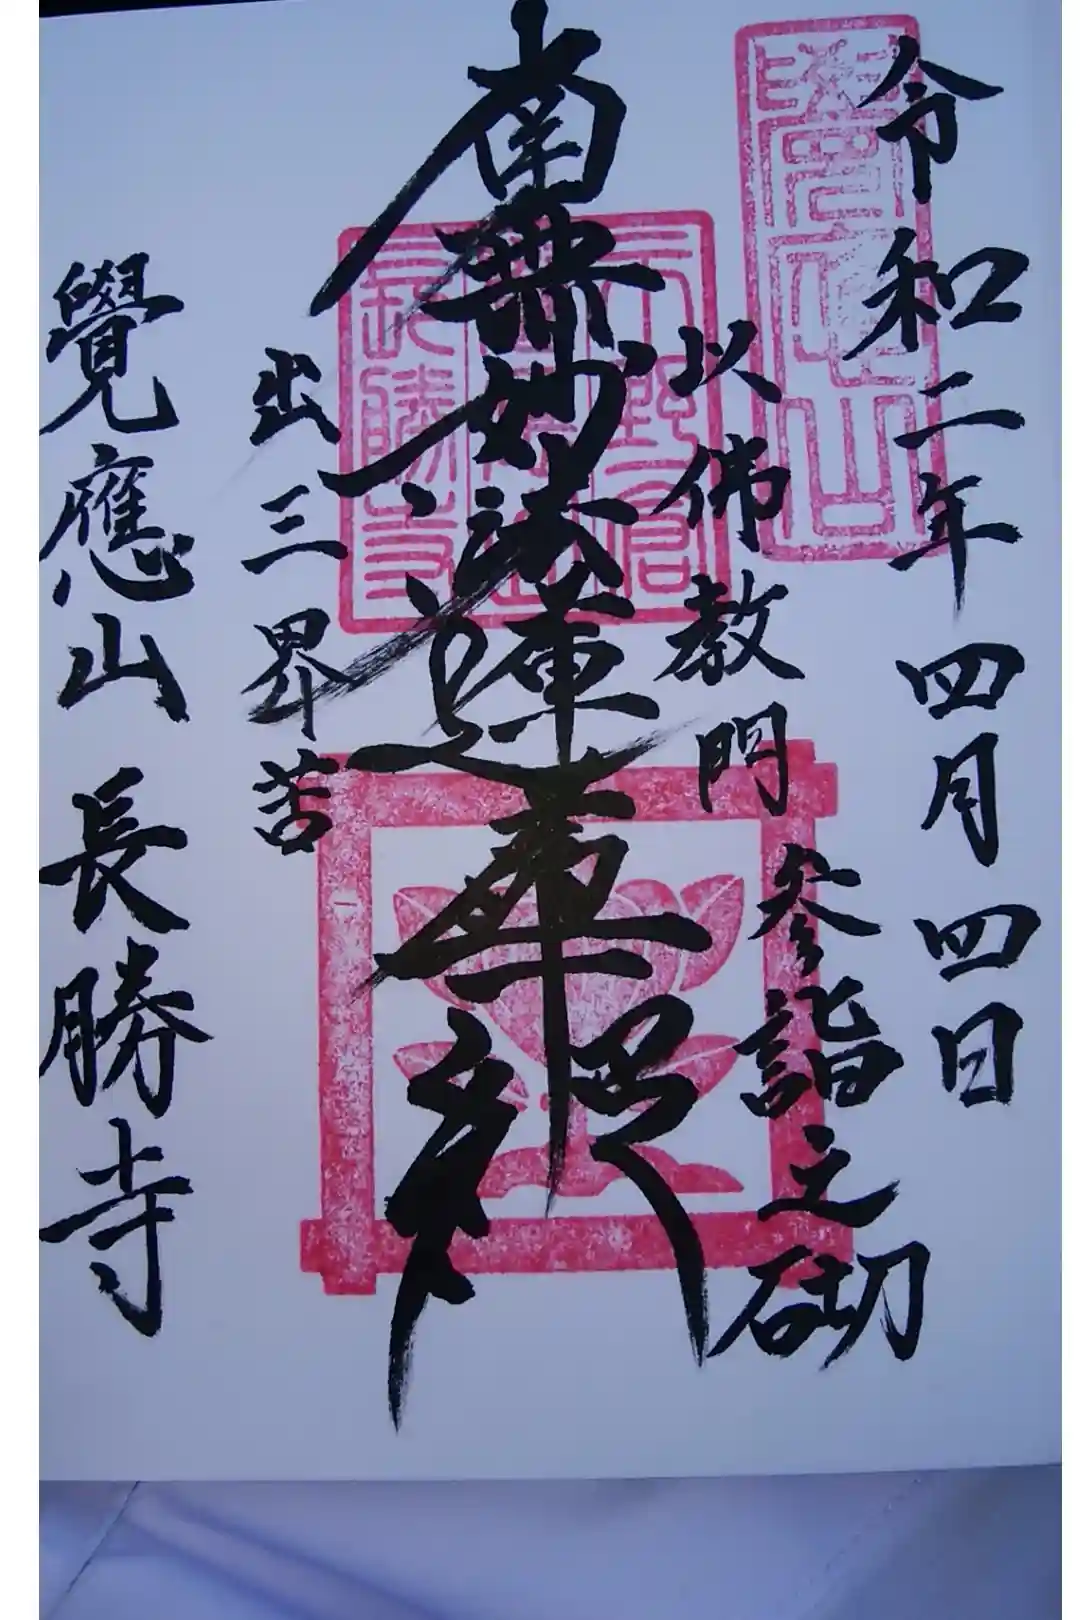 令和二年四月四日
参詣之砌
以佛教門
南無妙法蓮華経
出三界苦
覺應山長勝寺
長勝寺